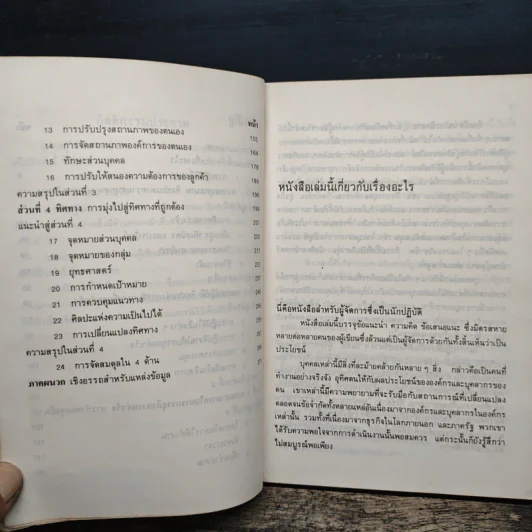 หน้า
13 การปรับปรุงสถานภาพของตนเอง 155
14 การจัดสถานภาพองค์การของตนเอง 168
15 ทักษะส่วนบุคคล 179
16 การปรับให้สนองความต้องการของลูกค้า 186
ความสรุปในส่วนที่ 3
ส่วนที่ 4 ทิศทาง การมุ่งไปสู่ทิศทางที่ถูกต้อง
แนะนำสู่ส่วนที่ 4
17 จุดหมายส่วนบุคคล
18 จุดหมายของกลุ่ม
19 ยุทธศาสตร์
20 การกำหนดเป้าหมาย
21 การควบคุมแนวทาง
22 ศิลปะแห่งความเป็นไปได้
23 การเปลี่ยนแปลงทิศทาง
ความสรุปในส่วนที่ 4
24 การจัดสมดุลใน 4 ด้าน
ภาคผนวก เชิงอรรถสำหรับแหล่งข้อมูล
หนังสือเล่มนี้เกี่ยวกับเรื่องอะไร
นี่คือหนังสือสำหรับผู้จัดการซึ่งเป็นนักปฏิบัติ
หนังสือเล่มนี้บรรจุข้อแนะนำ ความคิด ข้อเสนอแนะ ซึ่งมีความหลาก
หลายต่อหลายคนของผู้เขียนซึ่งล้วนแต่เป็นผู้จัดการด้วยกันทั้งสิ้นเห็นว่าเป็น
ประโยชน์
บุคคลเหล่านี้มีสิ่งที่ละม้ายคล้ายกันหลาย ๆ สิ่ง กล่าวคือเป็นคนที่
ทำงานอย่างจริงจัง อุทิศตนให้กับผลประโยชน์ขององค์กรและบุคลากรของ
ตน เขาเหล่านี้มีความพยายามที่จะรับมือกับสถานการณ์ที่เปลี่ยนแปลง
ตลอดจนข้อจำกัดทั้งหลายแหล่อันเนื่องมาจากองค์กรและบุคลากรในองค์กร
เหล่านั้น รวมทั้งที่เนื่องมาจากธุรกิจในโลกภายนอก และภาครัฐ พวกเขา
ได้รับความพอใจจากการดำเนินงานนั้นพอสมควร แต่กระนั้นก็ยังรู้สึกว่า
ไม่สมบูรณ์พอเพียง